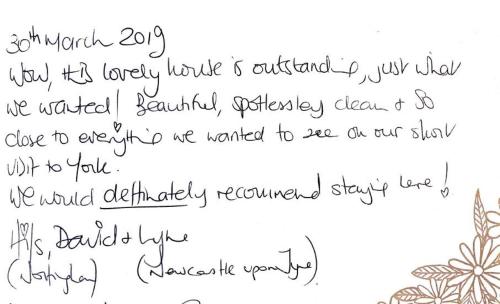 30th March 2019
Wow, this lovely house is outstanding, just what
we wanted! Beautiful, spotlessley clean & so
close to everything we wanted to see on our short
visit to York.
We would deffinately recommend staying here!
Hils, David & Lyne
(Nottingham) (Newcastle upon Tyne)